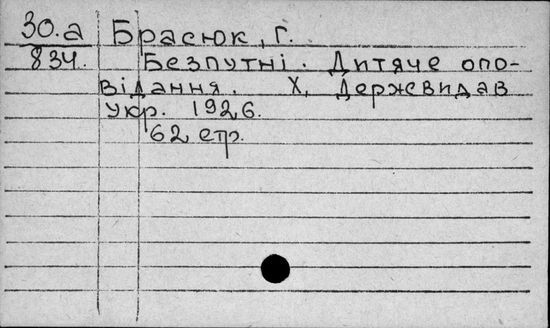 30.а Брасюк, Г.
834. Безпутні. Дитяче опо-
відання. Х, Держвидав
Укр. 1926.
62 стр.